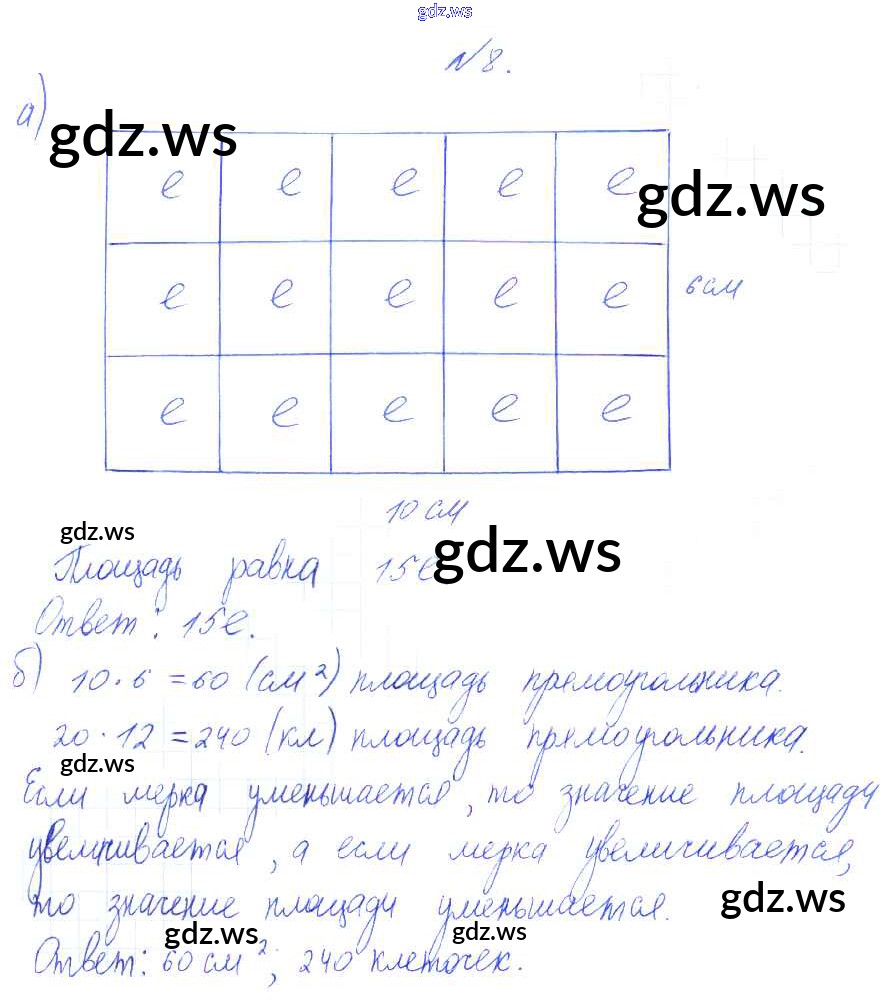 gdz.ws
№8.
а)
gdz.ws
е е е е е
gdz.ws
е е е е е 6 см
е е е е е
10 см
gdz.ws
gdz.ws
Площадь равна 15е
Ответ: 15е.
б) 10·6 = 60 (см²) площадь прямоугольника.
20·12 = 240 (кл) площадь прямоугольника.
gdz.ws
Если мерка уменьшается, то значение площади
увеличивается, а если мерка увеличивается,
gdz.ws
то значение площади уменьшается.
gdz.ws
gdz.ws
Ответ: 60 см²; 240 клеточек.